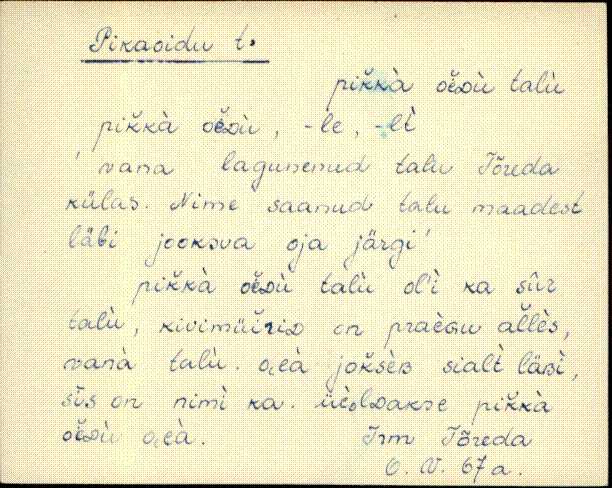 Pikaoidu t.
pik̆kà oĕᴅù talù
pik̆kà oĕᴅù, -le, -lt̀
'vana lagunenud talu Tõreda
külas. Nime saanud talu maadest
läbi jooksva oja järgi'
pik̆kà oĕᴅù talù ol'ì ka sûr
talù, kivimüĭriᴅ on praèɢu al̆lès,
vanà talù. ojà jok̆sèʙ sialt̀ läʙì,
sîs on nimì ka. üèlᴅakse pik̆kà
oĕᴅù ojà. Irm Tõreda
O. V. 67 a.